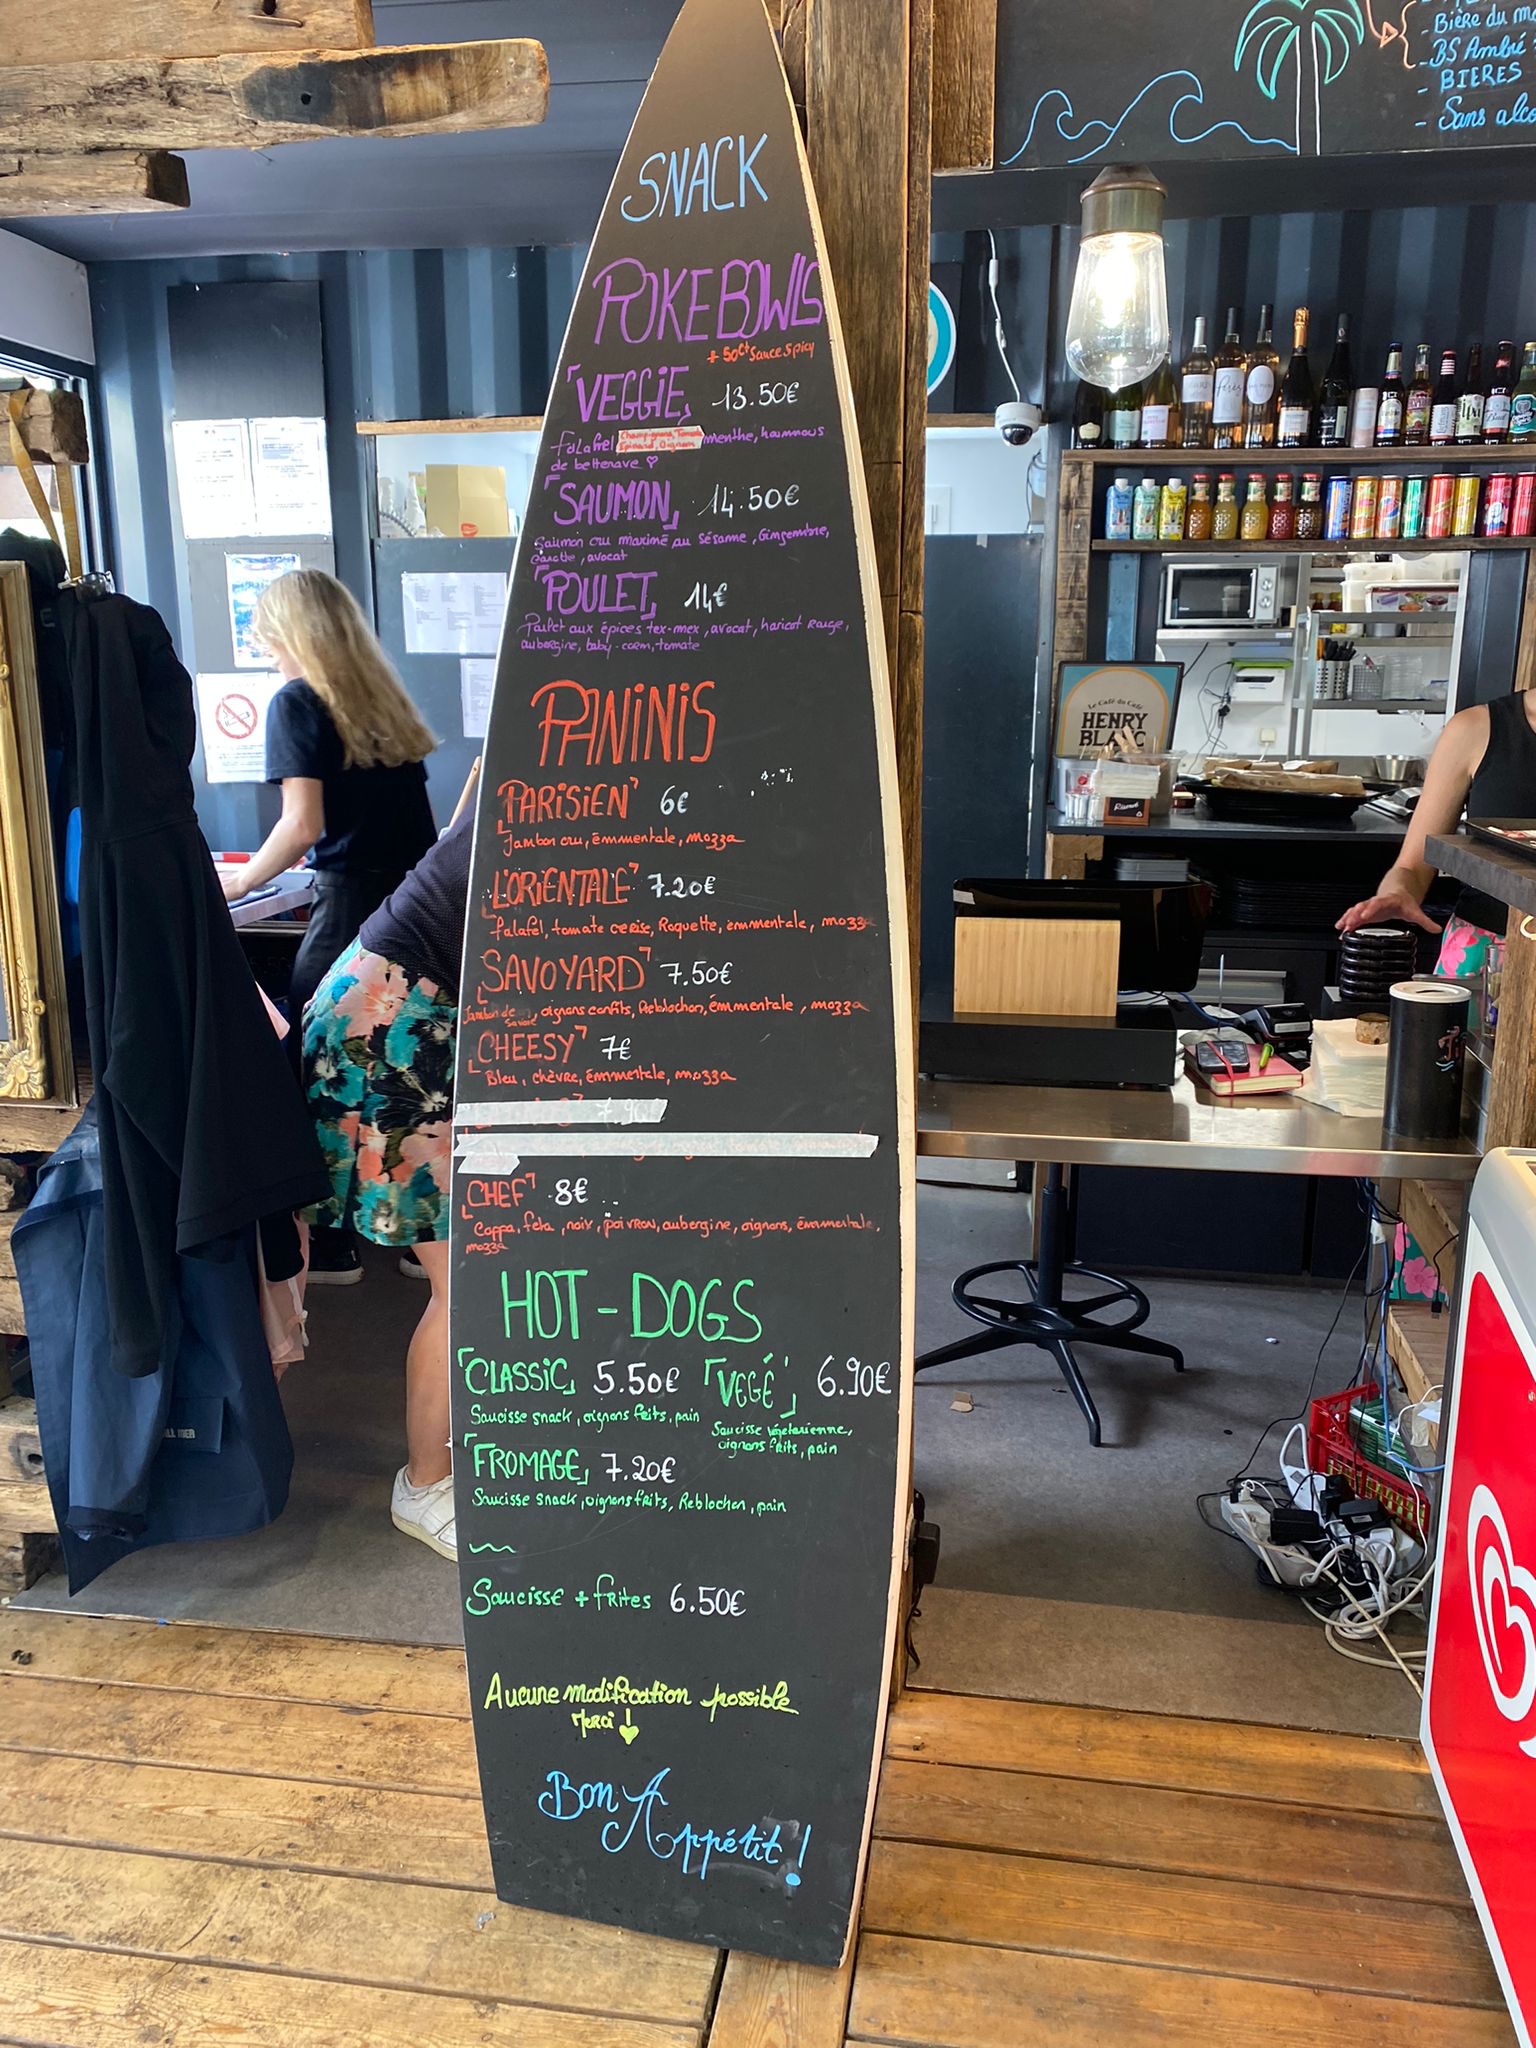 SNACK
POKEBOWLS
+ 50ct Sauce Spicy
VEGGIE 13.50€
falafel Champignons, Tomate menthe, houmous
Epinard, Oignons
de betterave
SAUMON 14.50€
Saumon cru mariné au sésame, Gingembre,
carotte, avocat
POULET 14€
Poulet aux épices tex-mex, avocat, haricot rouge,
aubergine, baby-corn, tomate
PANINIS
PARISIEN 6€
Jambon cru, émmentale, mozza
L'ORIENTALE 7.20€
falafel, tomate cerise, Roquette, émmentale, mozza
SAVOYARD 7.50€
Jambon de savoie, oignons confits, Reblochon, émmentale, mozza
CHEESY 7€
Bleu, chèvre, émmentale, mozza
CHEF 8€
Coppa, feta, noix, poivron, aubergine, oignons, émmentale,
mozza
HOT-DOGS
CLASSIC 5.50€ VEGÉ 6.90€
Saucisse snack, oignons frits, pain
Saucisse végétarienne,
oignons frits, pain
FROMAGE 7.20€
Saucisse snack, oignons frits, Reblochon, pain
Saucisse + frites 6.50€
Aucune modification possible
Merci !
Bon Appétit !
- Bière du
- BS Ambré
- BIERES
- Sans
Le Café du Café
HENRY
BLANC